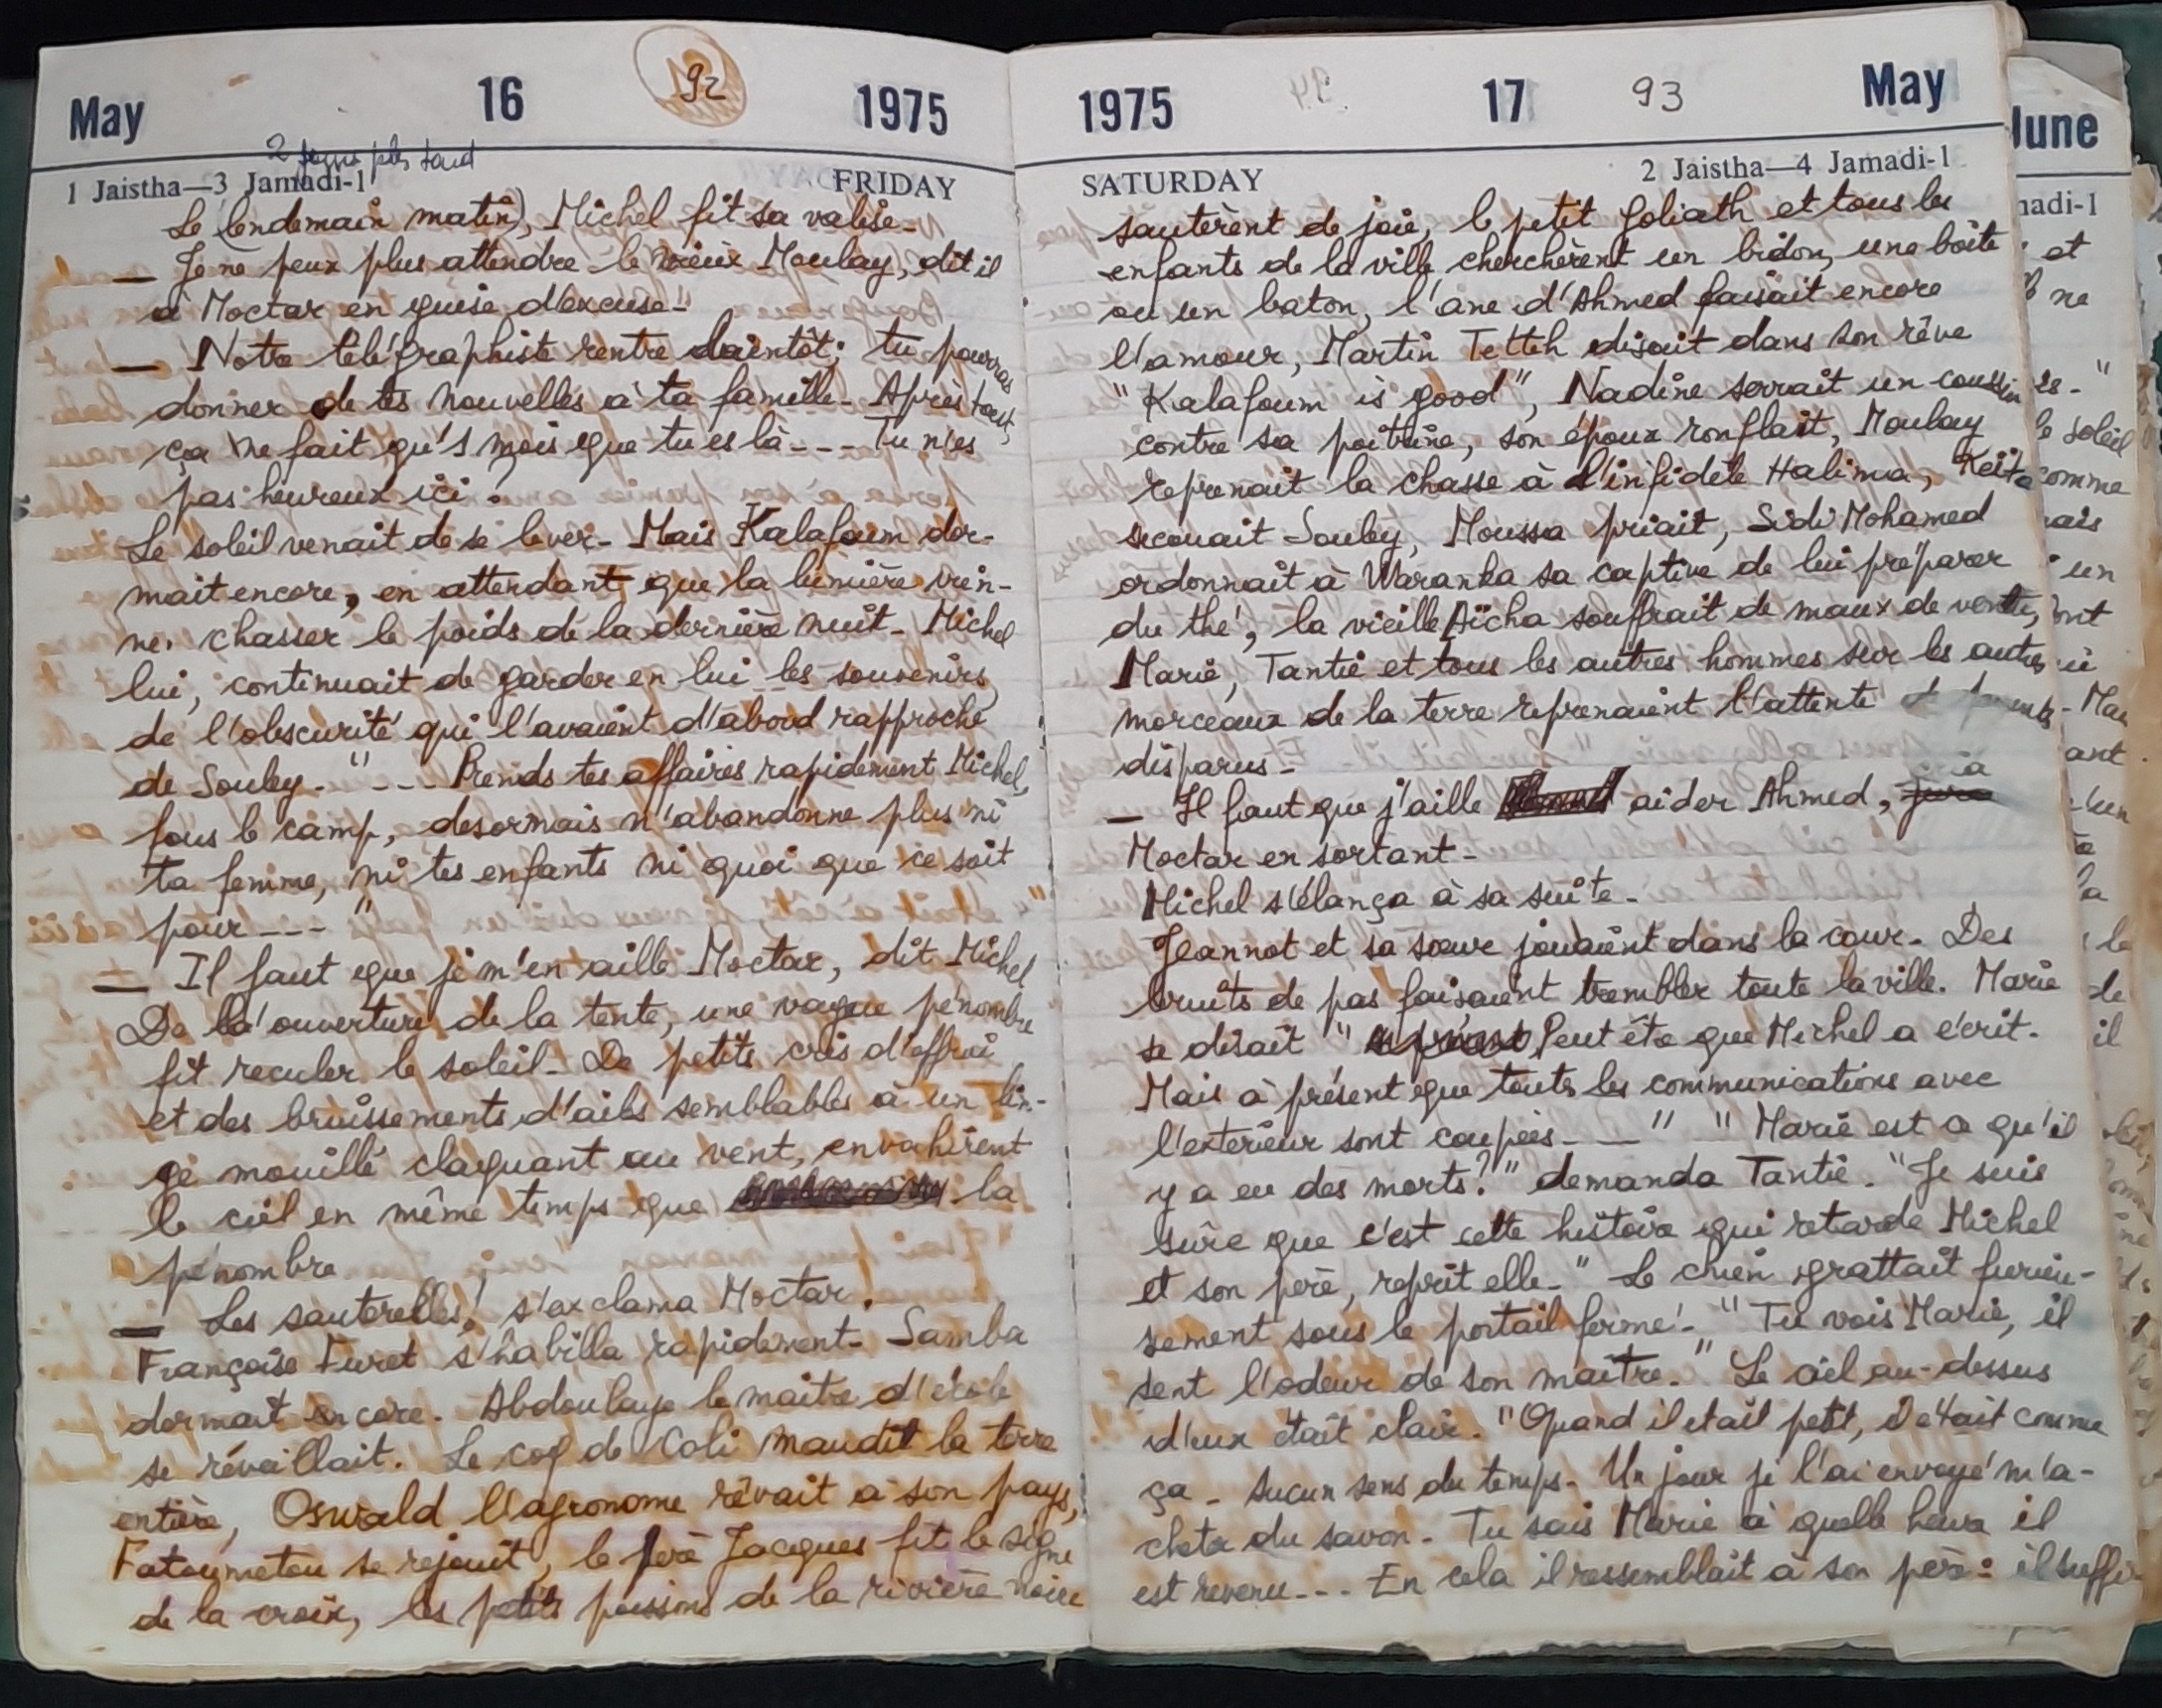 May 16 92 1975
2 jours plus tard
1 Jaistha—3 Jamadi-1 FRIDAY
Le (lendemain matin), Michel fit sa valise-
— Je ne peux plus attendre le vieux Moulay, dit il
à Moctar en guise d'excuse-
— Notre télégraphiste rentre bientôt; tu pourras
donner de tes nouvelles à ta famille- Après tout,
ça ne fait qu'1 mois que tu es là--- Tu n'es
pas heureux ici?
Le soleil venait de se lever- Mais Kalafoum dor-
mait encore, en attendant que la lumière vien-
ne. chasser le poids de la dernière nuit- Michel
lui, continuait de garder en lui les souvenirs
de l'obscurité qui l'avaient d'abord rapproché
de Souley. "--- Prends tes affaires rapidement Michel,
fous le camp, desormais n'abandonne plus ni
ta femme, ni tes enfants ni quoi que ce soit
pour--- "
— Il faut que je m'en aille Moctar, dit Michel
De la l'ouverture de la tente, une vague pénombre
fit reculer le soleil- De petits cris d'effroi
et des bruissements d'ailes semblables à un lin-
ge mouillé claquant au vent, envahirent
le ciel en même temps que la
pénombre
— Les sauterelles! s'exclama Moctar.
Françoise Furet s'habilla rapidement- Samba
dormait encore. Abdoulaye le maitre d'école
se réveillait. Le coq de Coli maudit la terre
entière, Oswald l'agronome rêvait à son pays,
Fatoumetou se rejouit, le père Jacques fit le signe
de la croix, les petits poissons de la rivière noire
1975 17 93 May
SATURDAY 2 Jaistha—4 Jamadi-1
sautèrent de joie, le petit Goliath et tous les
enfants de la ville cherchèrent un bidon, une boîte
ou un baton, l'ane d'Ahmed faisait encore
l'amour, Martin Tetteh disait dans son rêve
"Kalafoum is good", Nadine serrait un coussin
contre sa poitrine, son époux ronflait, Moulay
reprenait la chasse à l'infidèle Halima, Keita
secouait Souley, Moussa priait, Sidi Mohamed
ordonnait à Waranka sa captive de lui préparer
du thé, la vieille Aïcha souffrait de maux de ventre,
Marie, Tantie et tous les autres hommes sur les autres
morceaux de la terre reprenaient l'attente
disparus-
— Il faut que j'aille aider Ahmed, cria
Moctar en sortant-
Michel s'élança à sa suite-
Jeannot et sa soeur jouaient dans la cour- Des
bruits de pas faisaient trembler toute la ville. Marie
se disait " Peut être que Michel a écrit.
Mais à présent que toutes les communications avec
l'exterieur sont coupées---" "Marie est a qu'il
y a eu des morts?" demanda Tantie. "Je suis
sûre que c'est cette histoire qui retarde Michel
et son père, reprit elle-" Le chien grattait furieu-
sement sous le portail fermé- "Tu vois Marie, il
sent l'odeur de son maître." Le ciel au-dessus
d'eux était clair. "Quand il etait petit, c'était comme
ça- Aucun sens du temps- Un jour je l'ai envoyé m'a-
cheter du savon- Tu sais Marie à quelle heure il
est revenu--- En cela il ressemblait à son père: il suffi
June